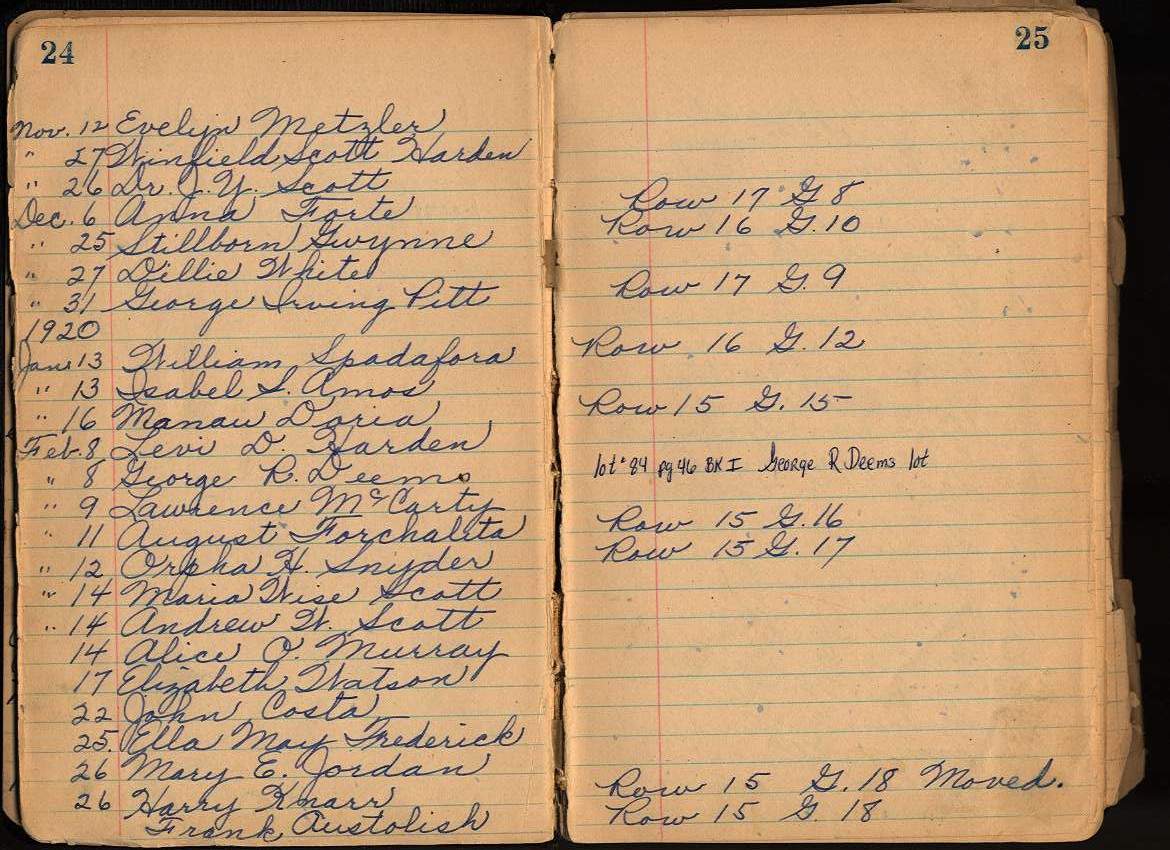 24
Nov. 12 Evelyn Metzler
" 27 Winfield Scott Harden
" 26 Dr. J. Y. Scott
Dec. 6 Anna Forte
" 25 Stillborn Gwynne
" 27 Dillie White
" 31 George Irving Pitt
1920
Jan. 13 William Spadafora
" 13 Isabel S. Amos
" 16 Manaw Doria
Feb. 8 Levi D. Harden
" 8 George R. Deems
" 9 Lawrence McCarty
" 11 August Forchalita
" 12 Orpha H. Snyder
" 14 Maria Wise Scott
" 14 Andrew W. Scott
14 Alice O. Murray
17 Elizabeth Watson
22 John Costa
25. Ella May Frederick
26 Mary E. Jordan
26 Harry Knarr
Frank Austolish
25
Row 17 G 8
Row 16 G. 10
Row 17 G. 9
Row 16 G. 12
Row 15 G. 15
lot # 84 pg 46 BK I George R Deems lot
Row 15 G. 16
Row 15 G. 17
Row 15 G. 18 Moved.
Row 15 G. 18